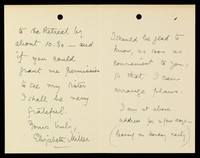 to the Retreat by
about 10.30 — and
if you could
grant me permission
to see my sister
I shall be very
grateful.
Yours truly,
Elizabeth Miller
I should be glad to
know, as soon as
convenient to you,
so that I can
arrange plans.
I am at above
address for a few days —
(leaving on Monday early)